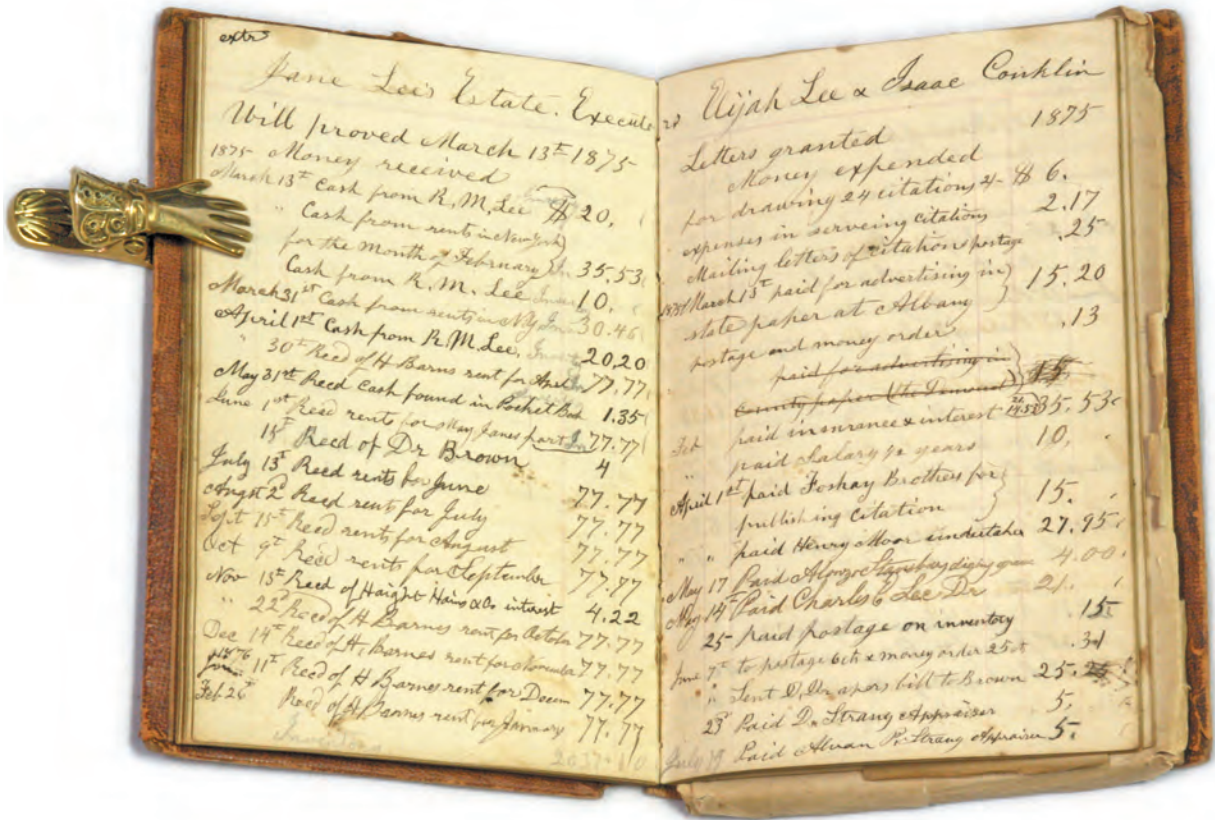 extr
Jane Lee's Estate. Executors
Will proved March 13th 1875
1875 Money received
March 13th Cash from R. M. Lee $ 20,
" Cash from rents in New York
for the month of February 35.53
Cash from R. M. Lee 10,
March 31st Cash from rents in N.Y. 30.46
April 1st Cash from R. M. Lee, 20,20
" 30th Recd of H Barns rent for April 77,77,
May 31st Recd Cash found in Pocket Book 1.35
June 1st Recd rent for May Janes part 77.77
15th Recd of Dr Brown 4
July 13th Recd rents for June 77.77
Augst 2d Recd rent for July 77.77
Sept 15th Recd rents for August 77.77
Oct 9th Recd rents for September 77.77
Nov 15th Recd of Haight Hains & Co interest 4.22
" 22d Recd of H Barnes rent for October 77.77
Dec 14th Recd of H, Barnes rent for November 77.77
1876
Jan 11th Recd of H Barnes rent for Decem 77.77
Feb 26th Recd of H Barnes rent for January 77.77
Elijah Lee & Isaac Conklin
Letters granted 1875
Money expended
for drawing 24 citations 2/- $ 6.
expenses in serveing citations 2.17
Mailing letters of citations postage .25
1875 March 15th paid for advertising in
state paper at Albany 15.20
postage and money order .13
paid for advertising in
county paper (the Democrat)
Feb paid insurance & interest 35.53
" paid Salary ½ years 10,
April 1st paid Foshay Brothers for
publishing citation 15.
" " paid Henry Moor undertaker 27.95
May 17 Paid Alonzo Stansbury diging grave 4.00
May 14th Paid Charles E Lee Dr 21.
25 paid postage on inventory 15
June 7th to postage 6ct & money order 25ct .31
" Sent bill to Brown 25.
23d Paid D. Strang Appraiser 5,
July 19 Paid Alvan P. Strang Appraiser 5.